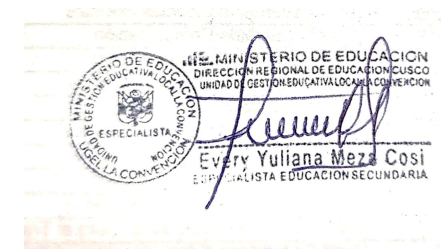 MINISTERIO DE EDUCACIÓN
UNIDAD DE GESTION EDUCATIVA LOCAL LA CONVENCION
ESPECIALISTA
UGEL LA CONVENCIÓN
MINISTERIO DE EDUCACION
DIRECCIÓN REGIONAL DE EDUCACIÓN CUSCO
UNIDAD DE GESTION EDUCATIVA LOCAL LA CONVENCION
Every Yuliana Meza Cosi
ESPECIALISTA EDUCACION SECUNDARIA